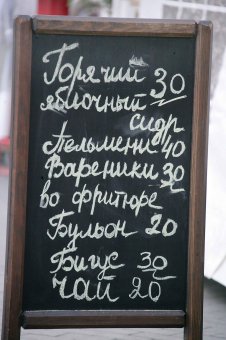 Горячий
яблочный 30
сидр
Пельмени 40
Вареники 30
во фритюре
Бульон 20
Бигус 30
Чай 20